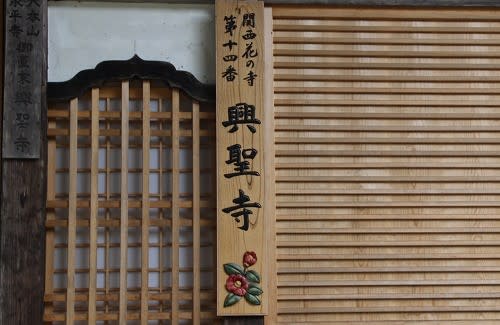 関西花の寺
第十四番
興聖寺
大本山
永平寺
御直末
興聖寺